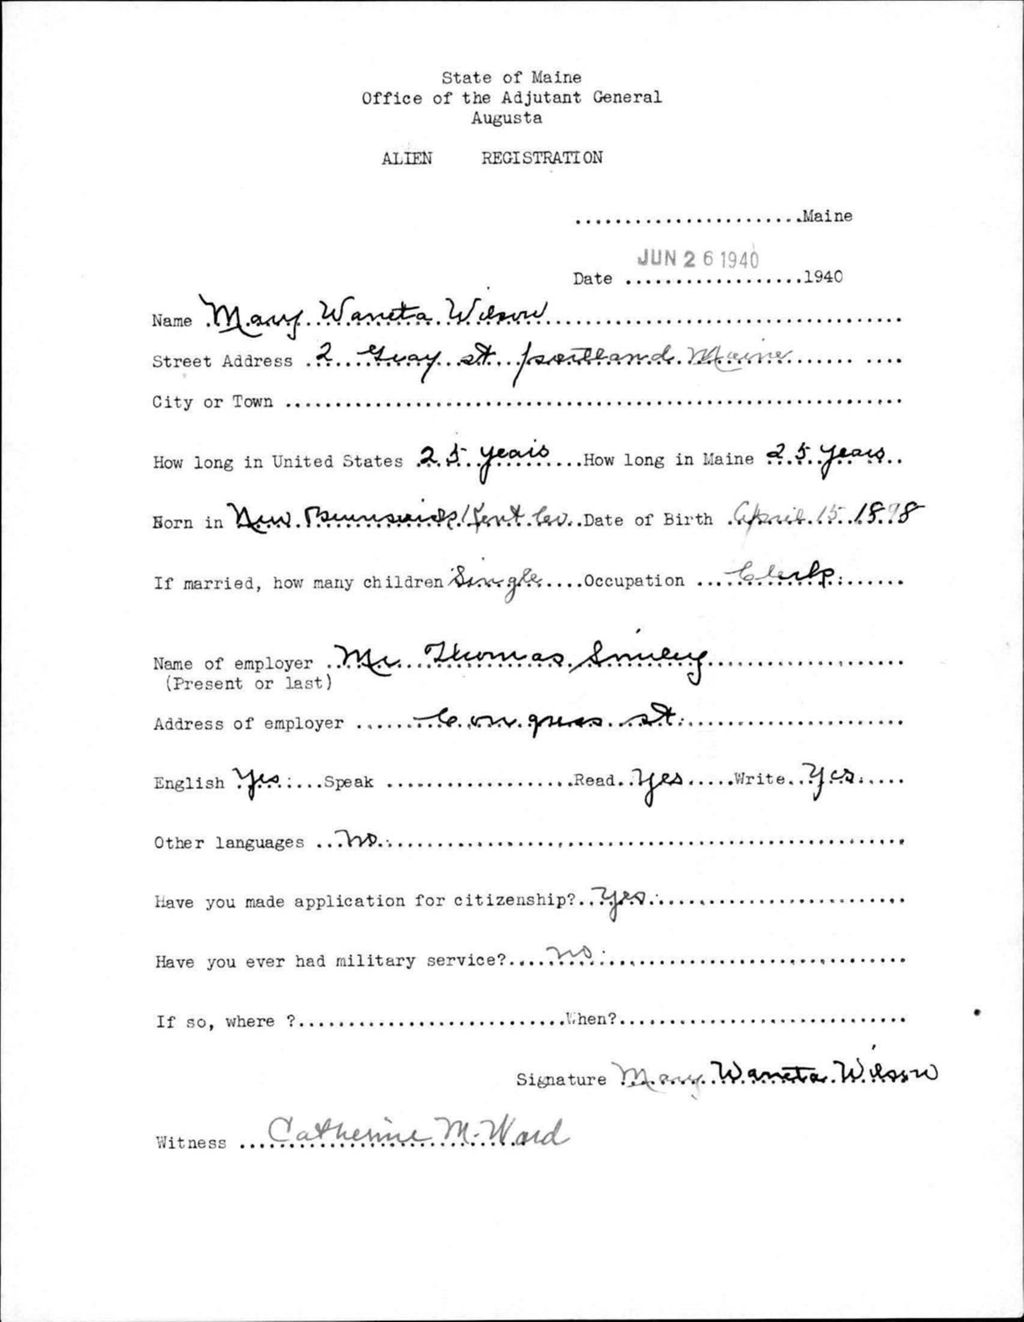 State of Maine
Office of the Adjutant General
Augusta
ALIEN REGISTRATION
.......................Maine
JUN 26 1940
Date ..................1940
Name Mary Waneta Wilson
Street Address 2 Gray st portland Maine
City or Town ..............................................................
How long in United States 25 years How long in Maine 25 years
Born in New Brunswick Kent Co. Date of Birth April 15 1898
If married, how many children Single Occupation Clerk
Name of employer Mr Thomas Smiley
(Present or last)
Address of employer Congress st.
English Yes Speak ................... Read Yes Write Yes
Other languages no
Have you made application for citizenship? Yes
Have you ever had military service? no
If so, where ?...........................When?.............................
Signature Mary Waneta Wilson
Witness Catherine M. Ward